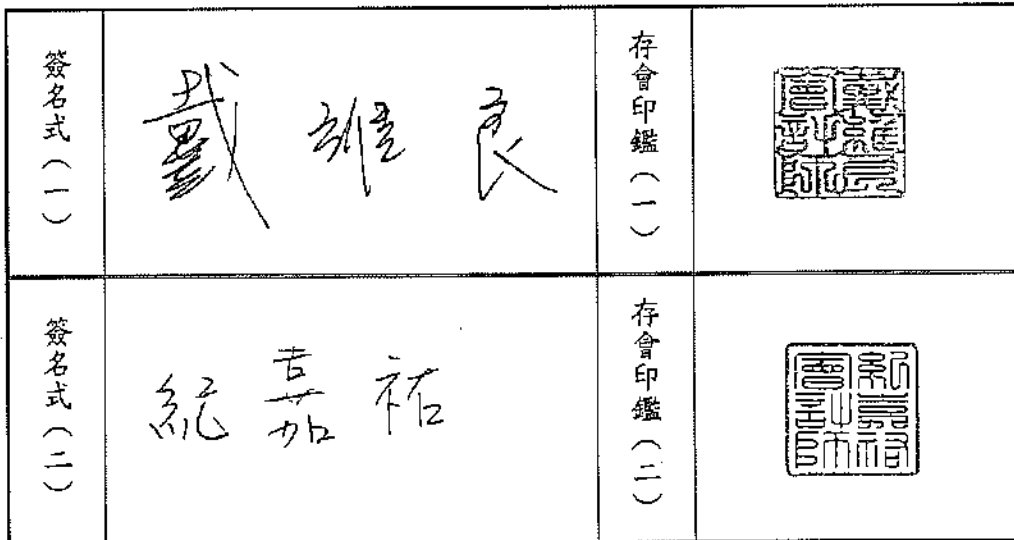 簽名式(一)
戴維良
存會印鑑(一)
戴維良會計師
簽名式(二)
紀嘉祐
存會印鑑(二)
紀嘉祐會計師